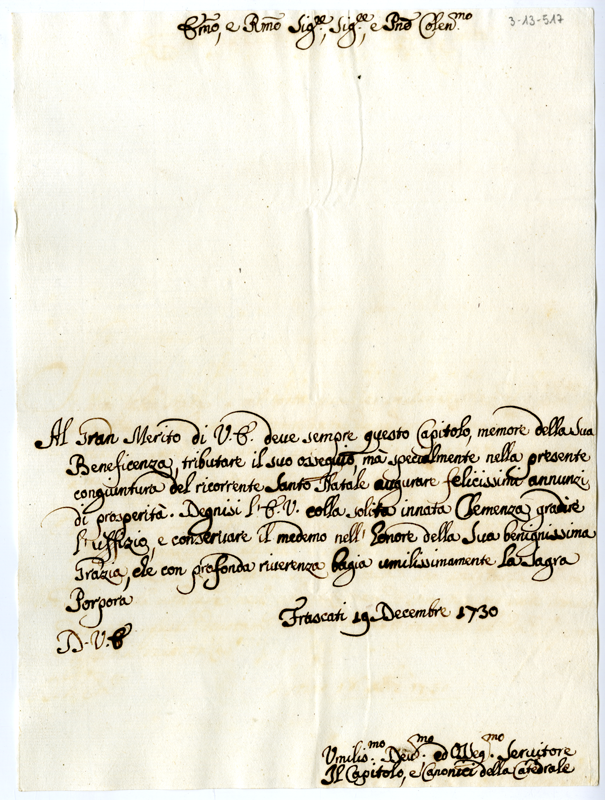 3-13-517
Emo, e Rmo Sig.re, Sig.re, e Pne Colen.mo
Al Gran Merito di V.E. deve sempre questo Capitolo, memore della Sua
Beneficenza, tributare il suo ossequio, ma specialmente nella presente
congiuntura del ricorrente Santo Natale augurare felicissimi annunzi
di prosperità. Degnisi l'E.V. colla solita innata Clemenza gradire
l'uffizio, e conservare il medemo nell'honore della Sua benignissima
Grazia, che con profonda riverenza bagia umilissimamente la Sagra
Porpora
Frascati 19 Decembre 1730
D. V. E
Umilis.mo Dev.mo ed Obleg.mo Servitore
Il Capitolo, e Canonici della Catedrale